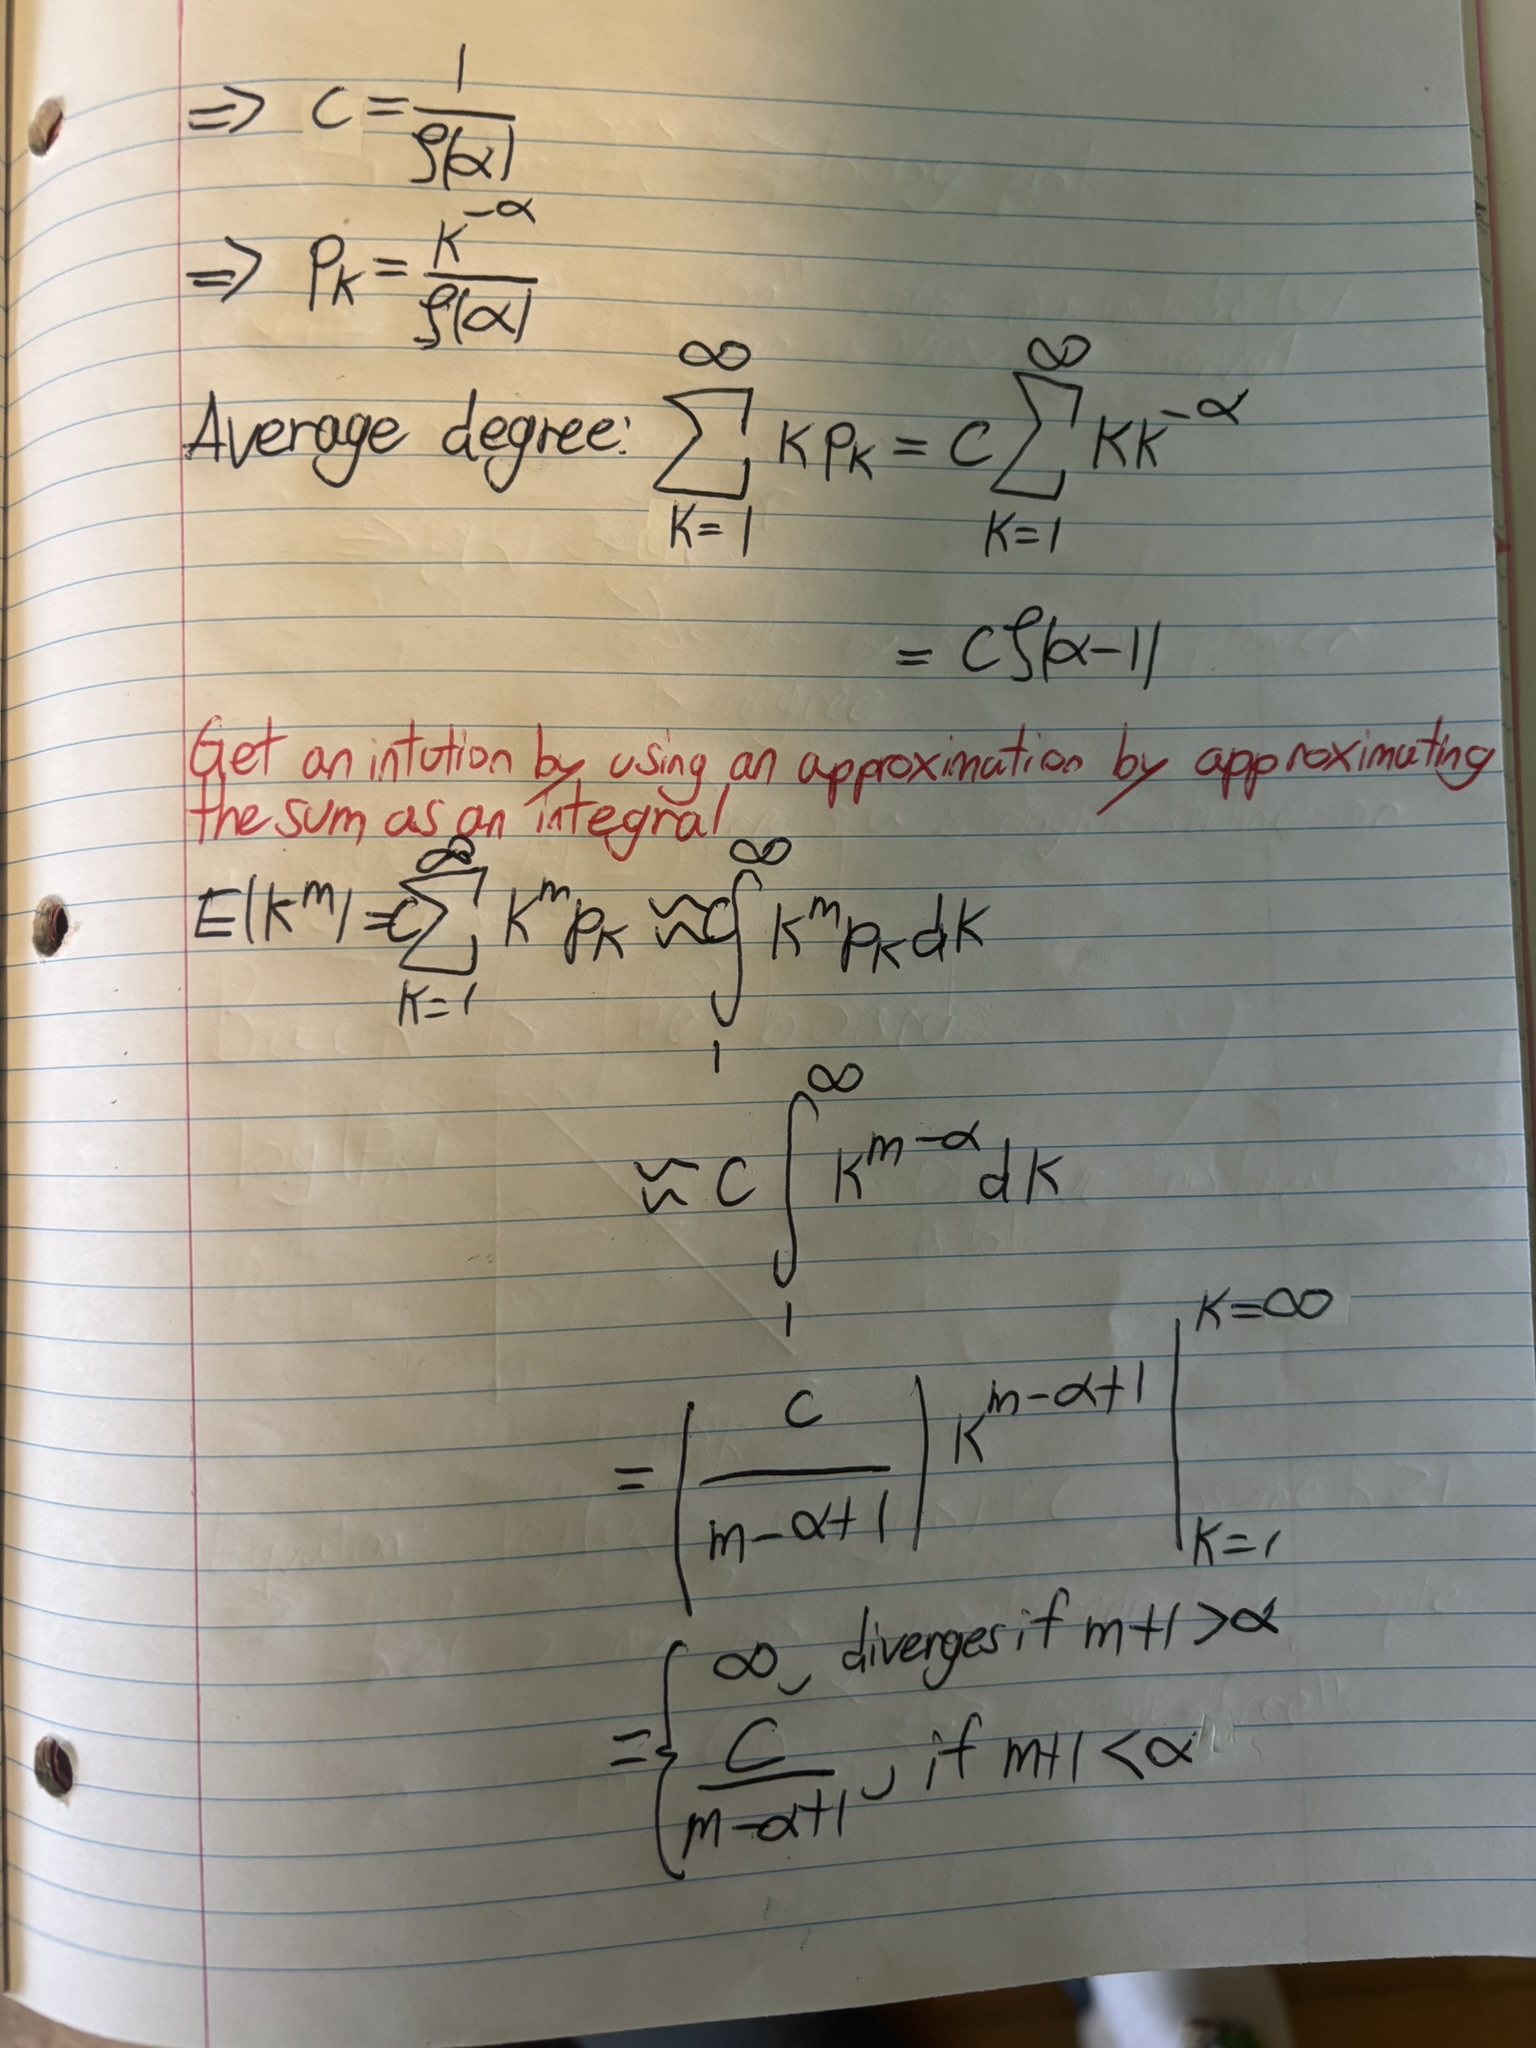 ⇒ C = 1/ζ(α)
⇒ p_K = K^{-α}/ζ(α)
Average degree: ∑_{K=1}^{∞} K p_K = C ∑_{K=1}^{∞} K K^{-α}
= C ζ(α-1)
Get an intution by using an approximation by approximating
the sum as an integral
E(K^m) = C ∑_{K=1}^{∞} K^m p_K ≈ C ∫_1^∞ K^m p_K dK
≈ C ∫_1^∞ K^{m-α} dK
= (C/(m-α+1)) K^{m-α+1} |_{K=1}^{K=∞}
= { ∞, diverges if m+1 > α
C/(m-α+1), if m+1 < α